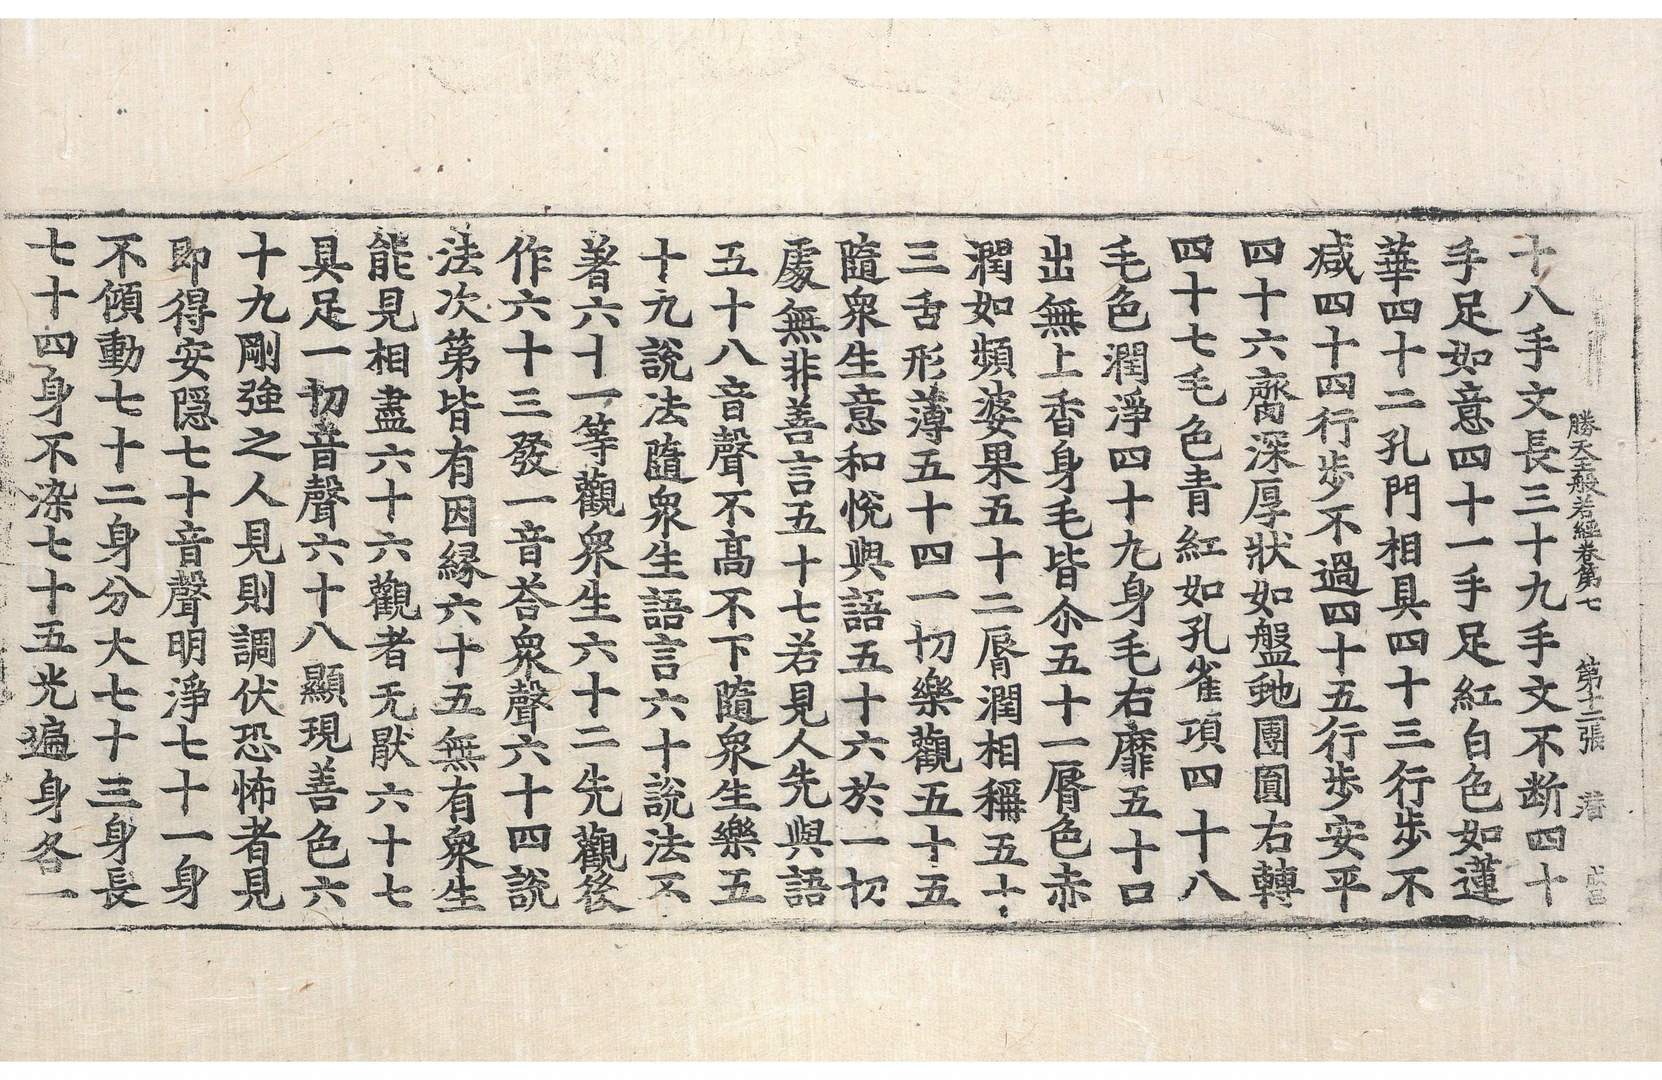 勝天王般若經卷第七 第十二張 㴑
十八手文長三十九手文不断四十
手足如意四十一手足紅白色如蓮
華四十二孔門相具四十三行步不
减四十四行步不過四十五行步安平
四十六齊深厚狀如盤虵團圓右轉
四十七毛色青紅如孔雀項四十八
毛色潤淨四十九身毛右靡五十口
出無上香身毛皆尒五十一脣色赤
潤如頻婆果五十二脣潤相稱五十
三舌形薄五十四一切樂觀五十五
隨衆生意和悅與語五十六於一切
處無非善言五十七若見人先與語
五十八音聲不高不下隨衆生樂五
十九說法隨衆生語言六十說法不
著六十一等觀衆生六十二先觀後
作六十三發一音荅衆聲六十四說
法次第皆有因縁六十五無有衆生
能見相盡六十六觀者无猒六十七
具足一切音聲六十八顯現善色六
十九剛強之人見則調伏恐怖者見
即得安隱七十音聲明淨七十一身
不傾動七十二身分大七十三身長
七十四身不染七十五光遍身各一